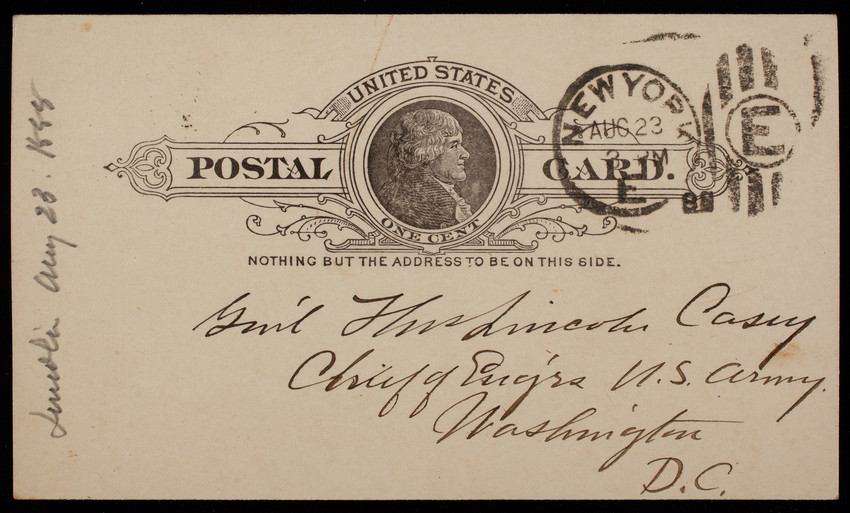 UNITED STATES
POSTAL CARD.
ONE CENT
NOTHING BUT THE ADDRESS TO BE ON THIS SIDE.
NEW YORK
AUG 23
PM
E
E
Gen'l Thos Lincoln Casey
Chief of Eng'rs U.S. Army.
Washington
D.C.
Lincoln Aug 23. 1888